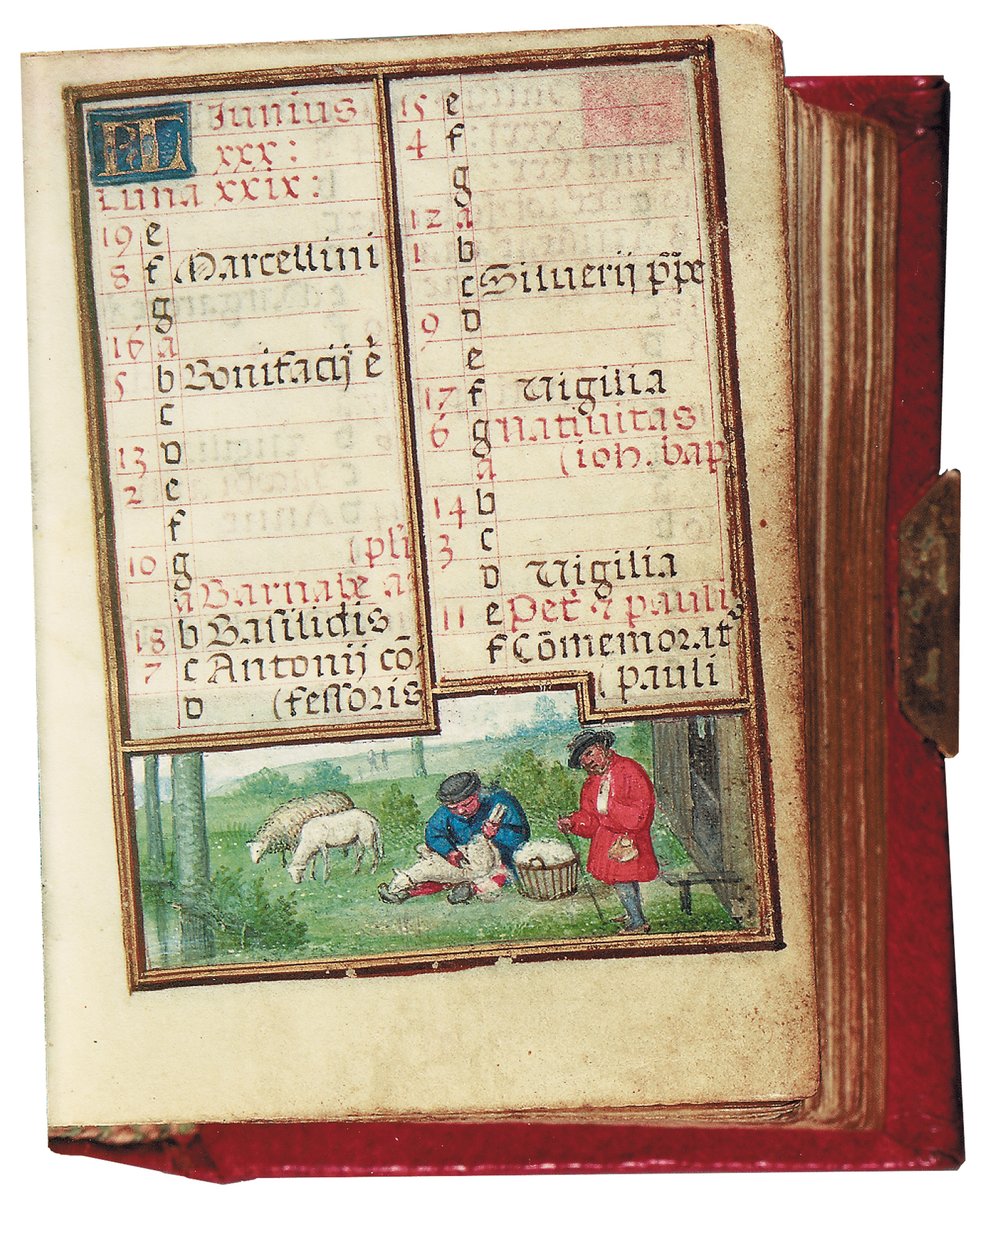 KL Junius
xxx :
Luna xxix :
19 e
8 f Marcellini
g
16 a
5 b Bonifacij e
c
13 d
2 e
f
10 g (pli
a Barnabe a
18 b Basilidis
7 c Antonij co
d (fessoris
15 e
4 f
g
12 a
1 b
c Siluerij ppe
9 d
e
17 f Uigilia
6 g Natiuitas
a (ioh. bap
14 b
3 c
d Uigilia
11 e Pet & pauli
f Cōmemorat
(pauli